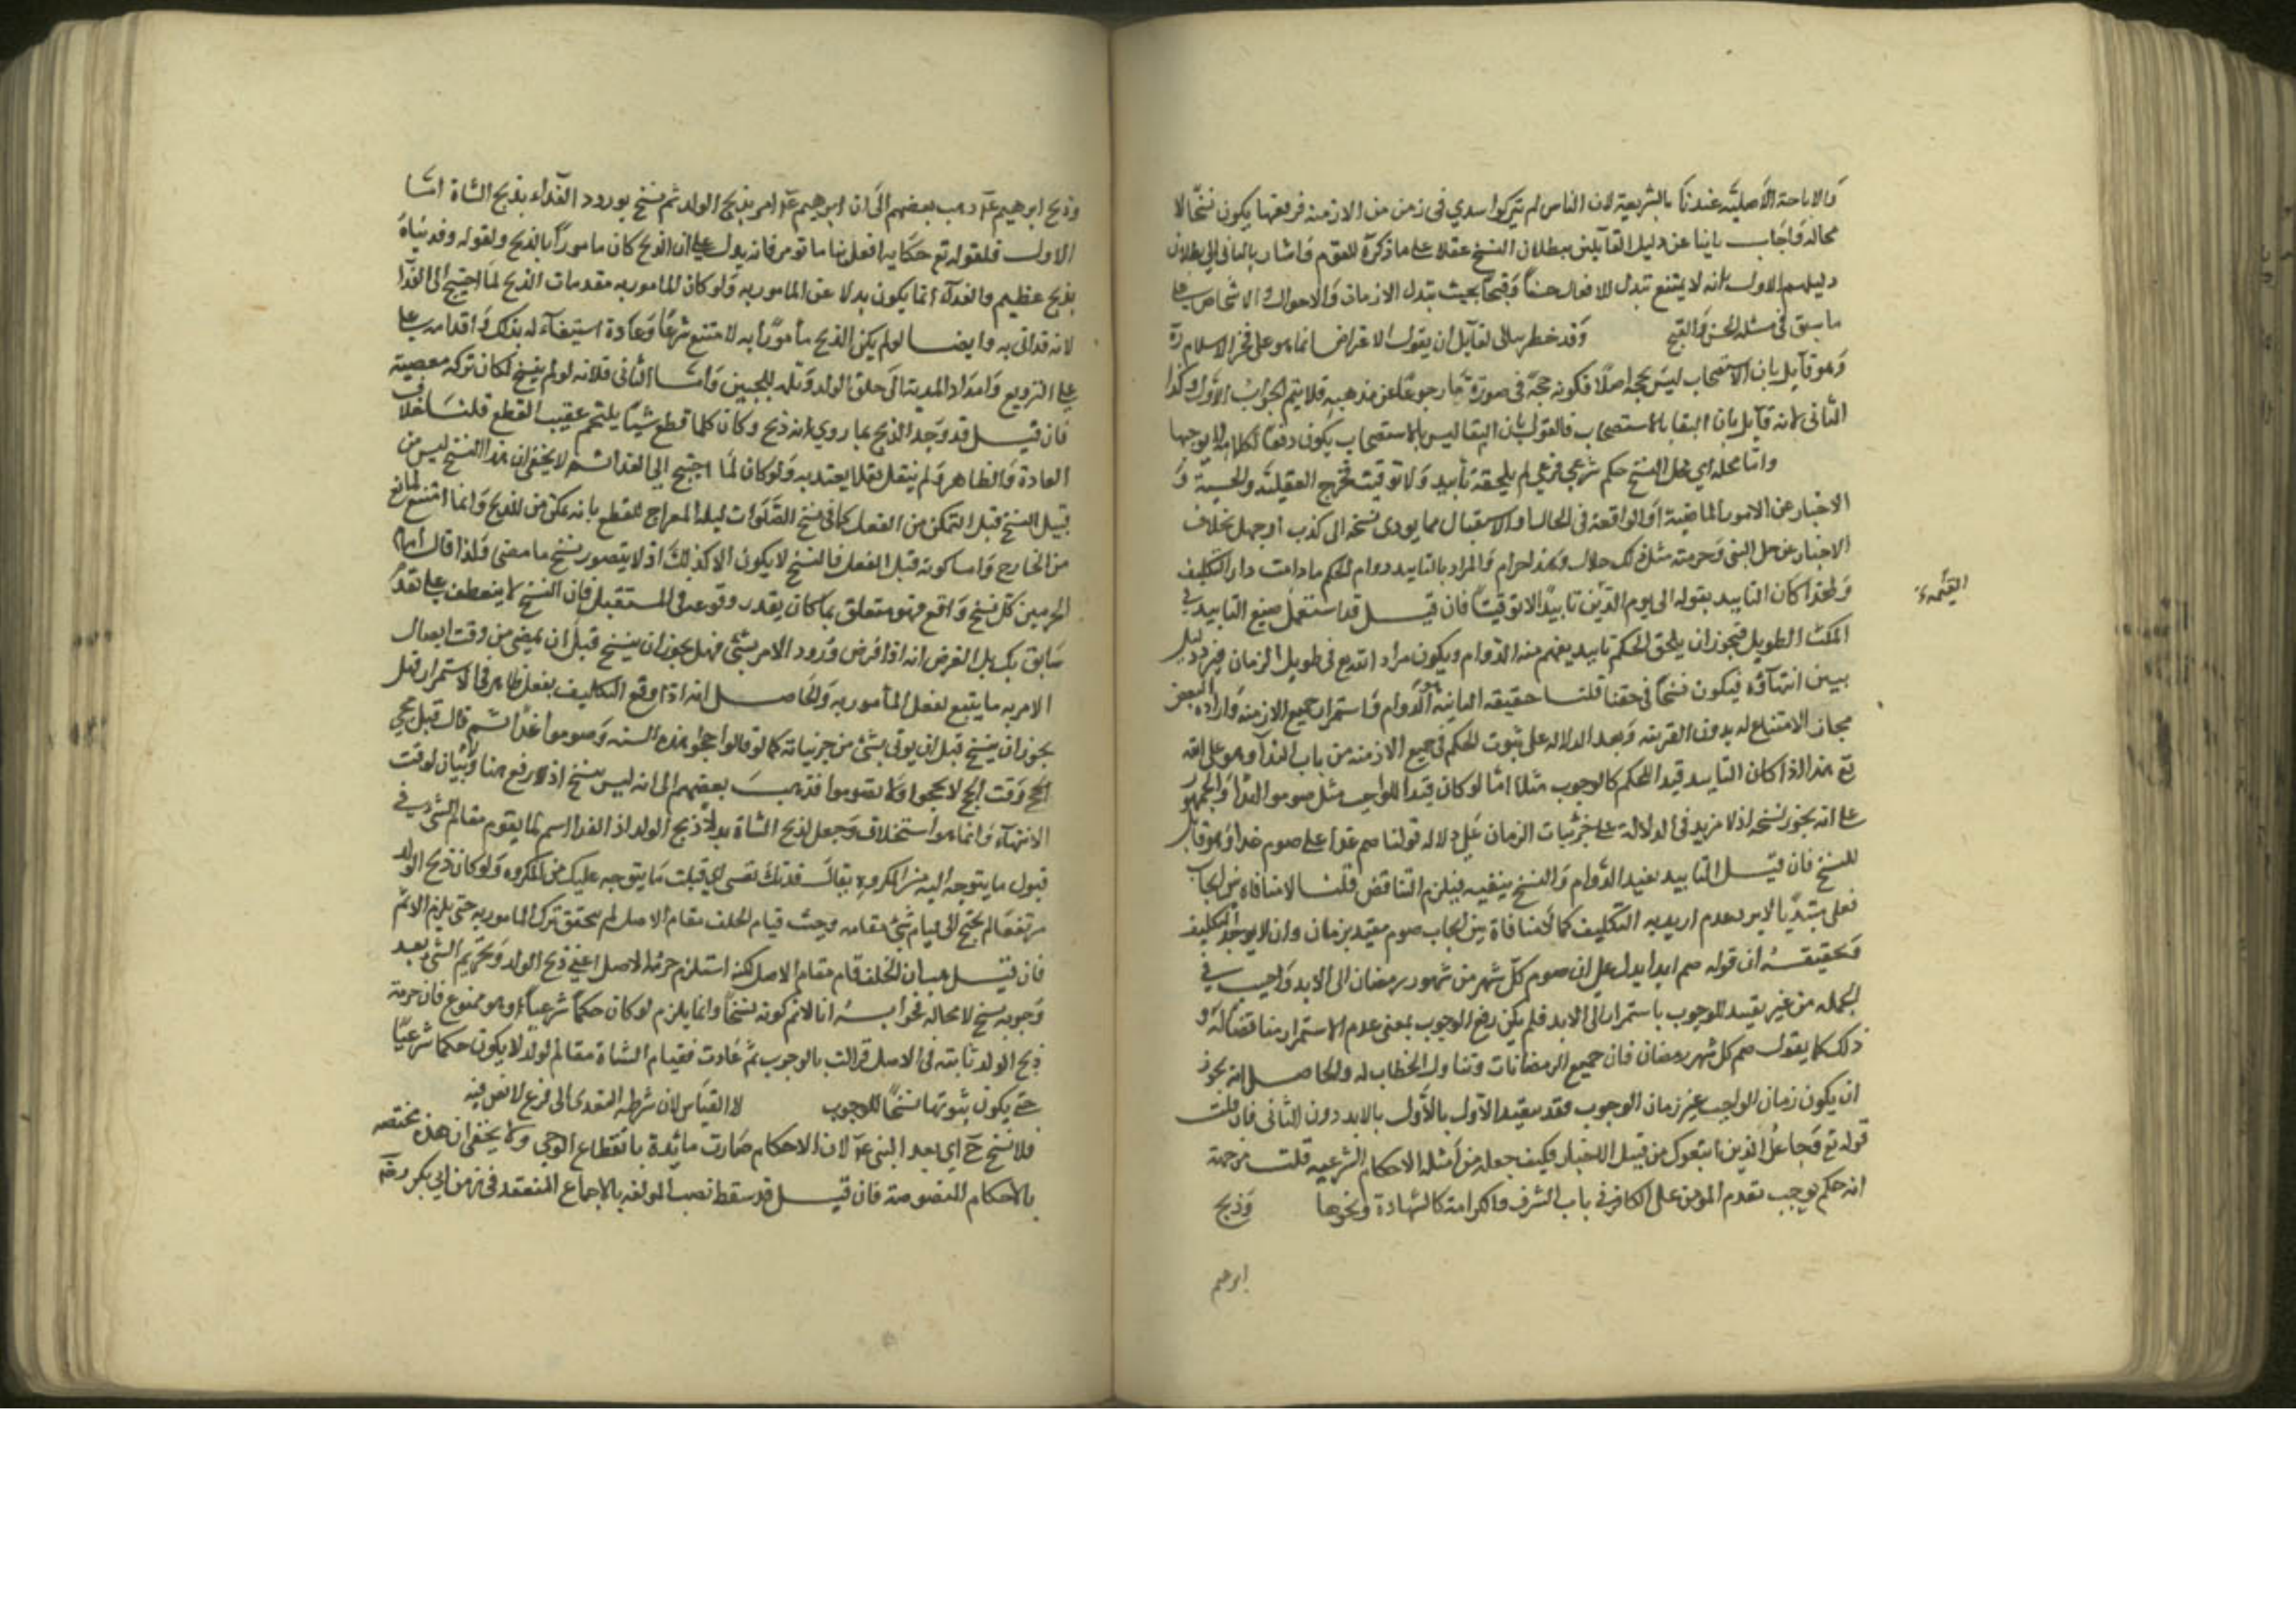 والاباحة الاصلية عندنا بالشريعة لان الناس لم يتركوا سدي في زمن من الازمنة فرفعها يكون نسخا لا
محالة فاجاب ثانيا عن دليل القائلين ببطلان النسخ عقلا على ما ذكره القوم واشار بالثاني الى بطلان
دليلهم الاول بانه لا يمتنع تبدل الافعال حسنا وقبحا بحيث تبدل الازمان والاحوال والاشخاص على
ما سبق في مسئلة الحسن والقبح وقد خطر ببالي لقايل ان يقول الاعتراض انما هو على فخر الاسلام ره
وهو قايل بان الاستصحاب ليس بحجة اصلا فكونه حجة في صورة ما رجوعا عن مذهبه فلا يتم الجواب الاول وكذا
الثاني لانه قايل بان البقا بالاستصحاب فالقول بان البقا ليس بالاستصحاب يكون دفعا لكلامه لا توجيها
واما محله اي محل النسخ حكم شرعي فرعي لم يلحقه تأبيد ولا توقيت فخرج العقلية والحسية و
الاخبار عن الامور الماضية او الواقعة في الحال او الاستقبال مما يودى نسخه الى كذب او جهل بخلاف
الاخبار عن حل الشي وحرمته مثل ذلك حلال وهذا حرام والمراد بالتابيد دوام الحكم ما دامت دار التكليف
ولهذا كان التاييد بقوله الى يوم الدين تابيدا لا توقيتا فان قيل قد استعمل صيغ التابيد في
القيمة
المكث الطويل فيجوز ان يلحق الحكم تابيد يفهم منه الدوام ويكون مراد الله تع في طويل الزمان فيرد دليل
يبين انتهاؤه فيكون نسخا في حقنا قلنا حقيقة التابيد هو الدوام واستمرار جميع الازمنة وارادة البعض
مجاز لا مساغ له بدون القرينة وبعد الدلالة على ثبوت الحكم في جميع الازمنة من باب البدا وهو على الله
تع هذا اذا كان التابيد قيدا للحكم كالوجوب مثلا اما لو كان قيدا للواجب مثل صوموا ابدا والجمهور
على انه يجوز نسخه اذ لا مزيد في الدلالة على جزئيات الزمان على دلالة قولنا صم غدا على صوم غدا وهو قابل
للنسخ فان قيل التابيد يفيد الدوام والنسخ ينفيه فيلزم التناقض قلنا لا منافاة بين ايجاب
فعل مقيد بالابد وعدم ابديه التكليف كما لا منافاة بين ايجاب صوم مقيد بزمان وان لا يوجد التكليف
وتحقيقه ان قوله صم ابدا يدل على ان صوم كل شهر من شهور رمضان الى الابد واجب في
الجملة من غير تقييد للوجوب باستمراره الى الابد فلم يكن رفع الوجوب بمعنى عدم الاستمرار مناقضا له و
ذلك كما يقول صم كل شهر رمضان فان جميع الرمضانات وتناول الخطاب له والحاصل انه يجوز
ان يكون زمان الواجب غير زمان الوجوب فقد يقيد الاول بالابد دون الثاني فان قلت
قوله تع وجاعل الذين اتبعوك من قبيل الاخبار فكيف جعله من امثلة الاحكام الشرعية قلت من جهة
انه حكم بوجب تقدم المؤمن على الكافر في باب الشرف والكرامة كالشهادة ونحوها وذبح
ابرهيم
وذبح ابرهيم عم ذهب بعضهم الى ان ابرهيم عم امر بذبح الولد ثم نسخ بورود الفداء بذبح الشاة اما
الاول فلقوله تع حكاية افعل ما تؤمر فانه يدل على ان الذبح كان مامورا بالذبح ولقوله وفديناه
بذبح عظيم والفداء انما يكون بدلا عن المامور به ولو كان المامور به مقدمات الذبح لما احتيج الى الفدا
لانه قد اتى به وايضا لو لم يكن الذبح مأمورا به لامتنع شرعا وعادة اقدامه على
الترويع وامرار المدية الى حلق الولد وتله للجبين واما الثاني فلانه لو لم ينسخ لكان تركه معصية
فان قيل قد وجد الذبح بما روي انه ذبح وكان كلما قطع شيئا يلتحم عقيب القطع قلنا خلاف
العادة والظاهر ولم ينقل نقلا يعتد به ولو كان لما احتيج الى الفدا ثم لا يخفى ان هذا النسخ ليس من
قبيل النسخ قبل التمكن من الفعل كما في نسخ الصلوات ليلة المعراج للقطع بانه تمكن من الذبح وانما امتنع لمانع
من الخارج واما كونه قبل الفعل فالنسخ لا يكون الا كذلك اذ لا يتصور نسخ ما مضى ولذا قال امام
الحرمين كل نسخ واقع فهو متعلق بما كان يقدر وقوعه في المستقبل فان النسخ لا ينعطف على تقدم
سابق بل الغرض انه اذا فرض ورود الامر بشئ فهل يجوز ان ينسخ قبل ان يمضي من وقت اتصال
الامر به ما يتسع لفعل المأمور به والحاصل انه اذا وقع التكليف بفعل ظاهر في الاستمرار فهل
يجوز ان ينسخ قبل ان يوتى بشئ من جزئياته كما لو قالوا حجوا هذه السنة وصوموا غدا ثم قال قبل مجئ
الحج وقت الحج لا تحجوا ولا تصوموا فذهب بعضهم الى انه ليس بنسخ اذ لا رفع هنا ولا بيان لوقت
الانتهاء وانما هو استخلاف وجعل لذبح الشاة بدلا عن ذبح الولد اذ الفدا اسم لما يقوم مقام الشئ في
قبول ما يتوجه اليه من المكروه يقال فديتك نفسي اي قبلت ما يتوجه عليك من المكروه ولو كان ذبح الولد
مرتفعا لم يحتج الى قيام شئ مقامه وحيث قيام الخلف مقام الاصل لم يتحقق ترك المامور به حتى يلزم الاثم
فان قيل هب ان الخلف قام مقام الاصل لكنه استلزم حرمة الاصل اعني ذبح الولد وتحريم الشئ بعد
وجوبه نسخ لا محالة فجوابه انا لا نم كونه نسخا وانما يلزم لو كان حكما شرعيا وهو ممنوع فان حرمة
ذبح الولد ثابتة في الاصل فزالت بالوجوب ثم عادت فقيام الشاة مقام الولد لا يكون حكما شرعيا
حتى يكون ثبوتها نسخا للوجوب لا القياس لان شرطه التعدى الى فرع لا نص فيه
فلا نسخ ح اي بعد النبي عم لان الاحكام صارت مؤبدة بانقطاع الوحي ولا يخفى ان هذه مختصة
بالاحكام المنصوصة فان قيل قد سقط نصيب المولفة بالاجماع المنعقد في زمن ابي بكر رضه